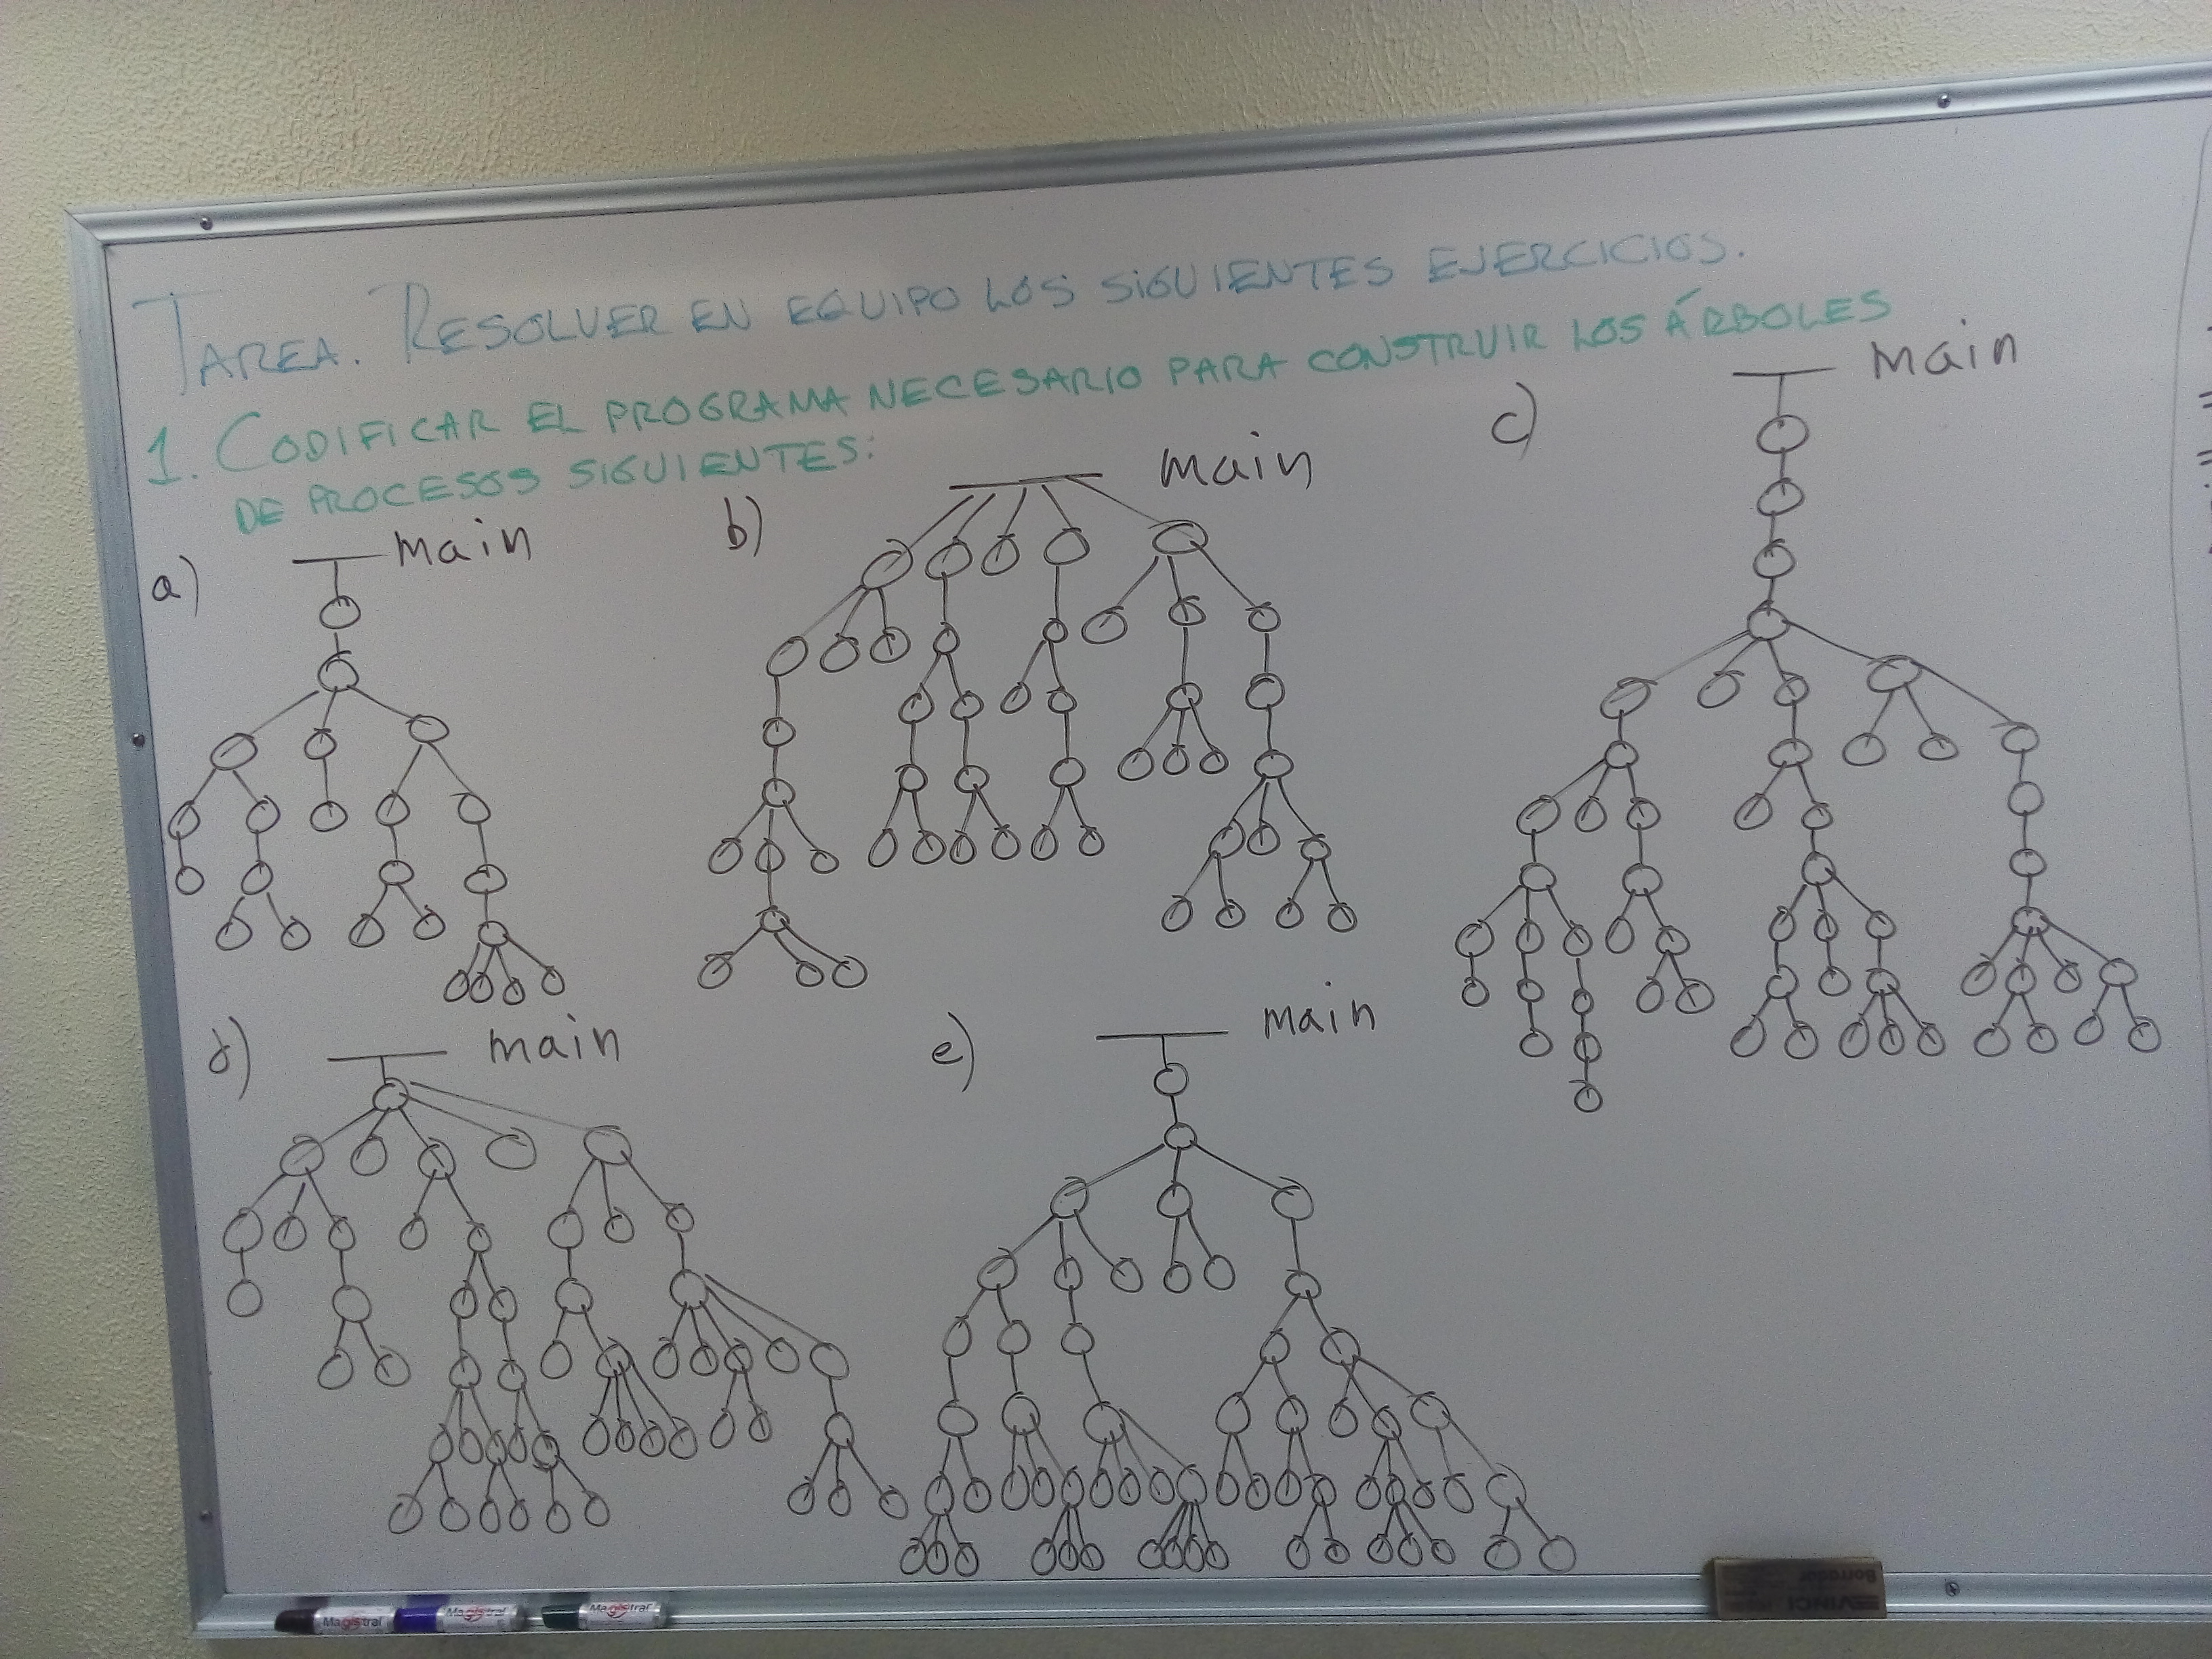 TAREA. RESOLVER EN EQUIPO LOS SIGUIENTES EJERCICIOS.
1. CODIFICAR EL PROGRAMA NECESARIO PARA CONSTRUIR LOS ÁRBOLES
DE PROCESOS SIGUIENTES:
a) main
b) main
c) main
d) main
e) main
Magistral Magistral Magistral
VINCI
Borrador